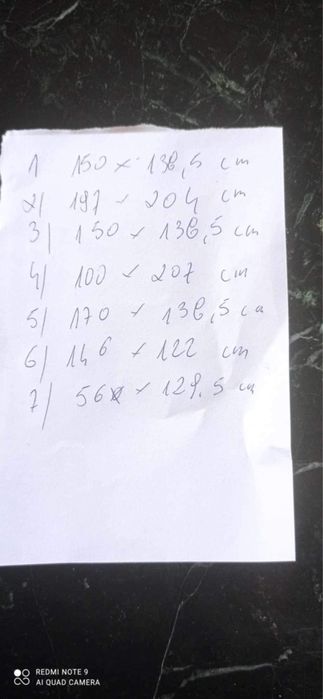 1 150 x 138,5 cm
2) 197 x 204 cm
3) 150 x 138,5 cm
4) 100 x 207 cm
5) 170 x 138,5 cm
6) 146 x 122 cm
7) 56 x 129.5 cm
REDMI NOTE 9
AI QUAD CAMERA